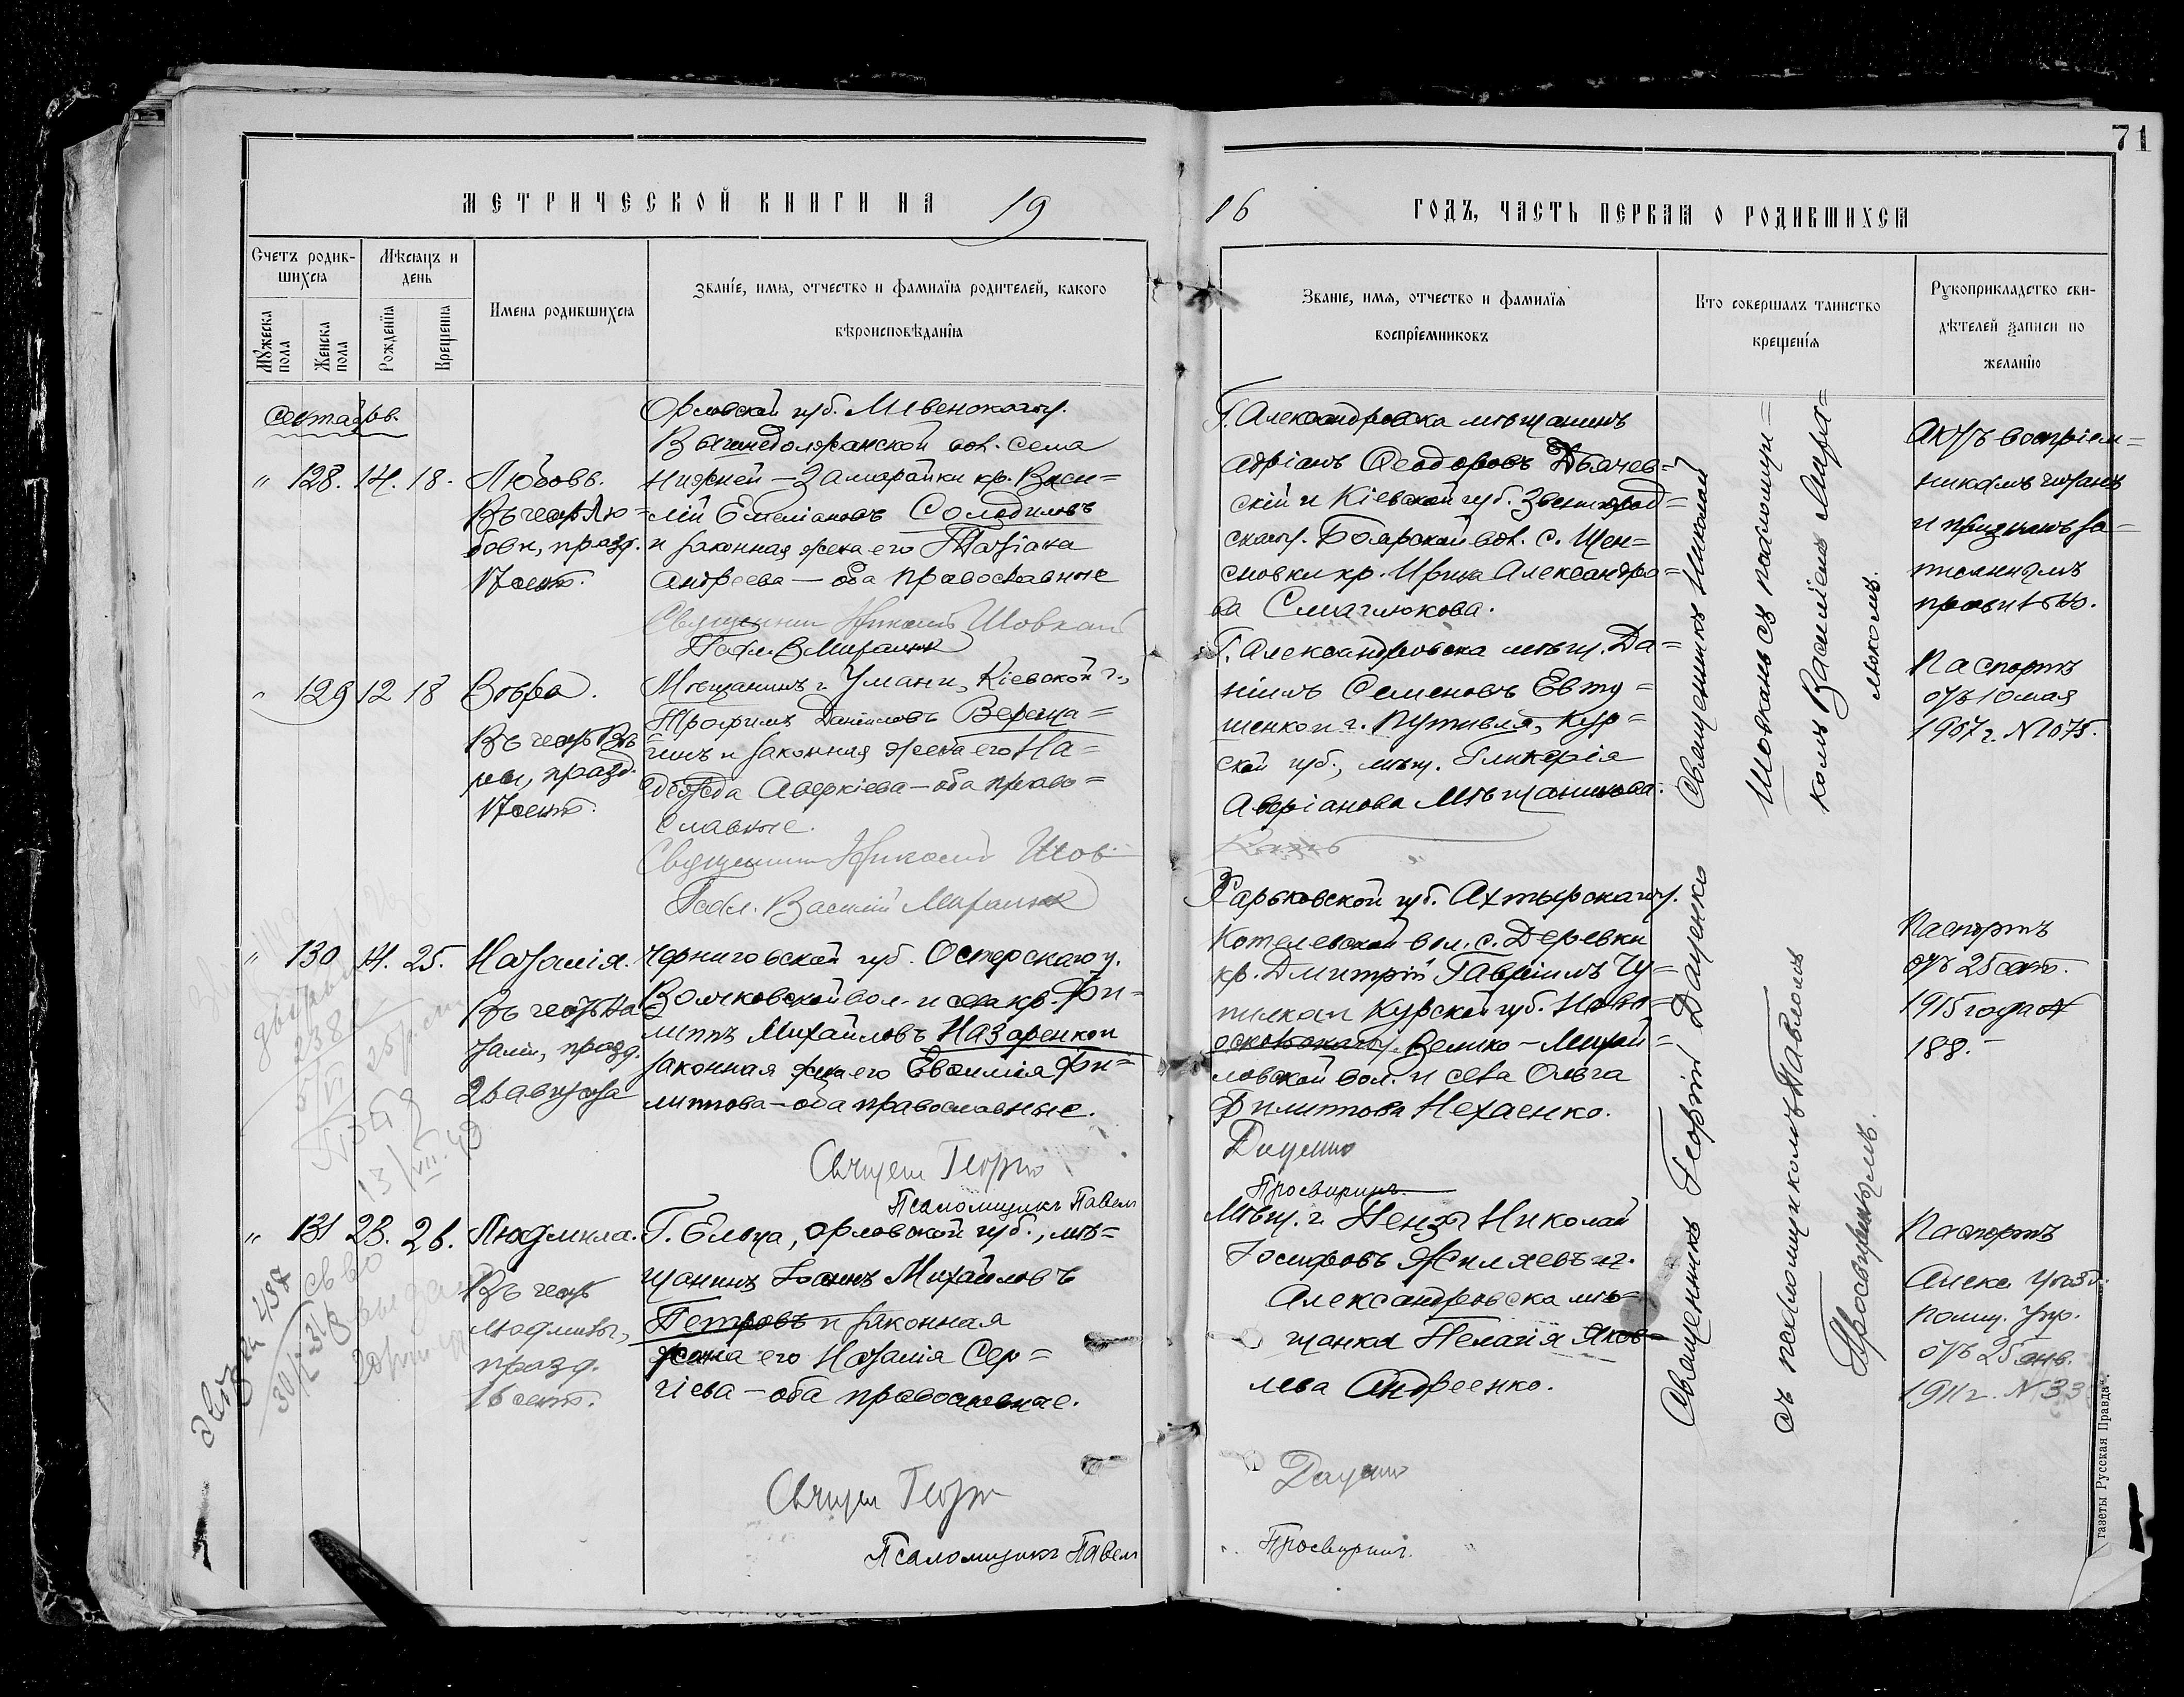 71
МЕТРИЧЕСКОЙ КНИГИ НА 19
16 ГОДЪ, ЧАСТЬ ПЕРВАЯ О РОДИВШИХСЯ
Счетъ родив-
шихся
Мѣсяцъ и
день
Мужеска пола
Женска пола
Рожденія
Крещенія
Имена родившихся
Званіе, имя, отчество и фамилія родителей, какого
вѣроисповѣданія
Званіе, имя, отчество и фамилія
воспріемниковъ
Кто совершалъ таинство
крещенія
Рукоприкладство сви-
дѣтелей записи по
желанію
Сентябрь.
" 128. 14. 18. Любовь.
Въ честь Лю=
бови, празд.
17 сент.
Орловской губ. Ливенскаго у.
Вышнедолжанской вол. села
Нижней-Замарайки кр. Васи=
лій Емеліановъ Солодиловъ
и законная жена его Татіана
Андреева — оба православные
Священникъ Николай Шовкань
Псал. В. Миралюк
Г. Александровска мѣщанинъ
Адріанъ Ѳеодоровъ Дьячев=
скій и Кіевской губ. Звенигород=
скаго у. Боярской вол. с. Щен=
сновки кр. Ирина Александро=
ва Смаглюкова.
Актъ воспріем=
никамъ читанъ
и признанъ за=
писаннымъ
правильно.
" 129 12 18 Вѣра.
Въ честь Вѣ=
ры, празд.
17 сент.
Мѣщанинъ г. Умани, Кіевской г.,
Трофимъ Даніиловъ Вереща=
гинъ и законная жена его На=
дежда Аверкіева — оба право=
славные.
Священникъ Николай Шов
Псал. Василій Миралюк
Г. Александровска мѣщ. Да=
ніилъ Семеновъ Евту=
шенко и г. Путивля, Кур=
ской губ., мѣщ. Гликерія
Авріанова Мѣщанинова.
Кань
Паспортъ
отъ 10 мая
1907 г. № 1075.
Священникъ Николай
Шовкань съ псаломщи=
комъ Василіемъ Мира=
люкомъ.
" 130 14. 25. Наталія.
Въ честь На=
таліи, празд.
26 августа
Черниговской губ. Остерскаго у.
вол. и села кр. Фи=
липпъ Михайловъ Назаренко и
законная жена его Евѳимія Фи=
липпова — оба православные.
Священ Георгій
Псаломщикъ Павелъ
Харьковской губ. Ахтырскаго у.
Котелевской вол. с. Деревки
кр. Дмитрій Гавріилъ Чу=
пилко и Курской губ. Ново=
оскольскаго у. Велико-Михай=
ловской вол. и села Ольга
Филиппова Нехаенко.
Даценко
Просвиринъ.
Паспортъ
отъ 25 сент.
1915 года №
188.
" 131 23. 26. Людмила.
Въ честь
Людмилы,
празд.
16 сент.
Г. Ельца, Орловской губ., мѣ=
щанинъ Іоаннъ Михайловъ
Петровъ и законная
жена его Наталія Сер=
гіева — оба православные.
Священ Георгій
Псаломщикъ Павелъ
Мѣщ. г. Николай
Іосифовъ Жиляевъ и г.
Александровска мѣ=
щанка Пелагія Яков=
лева Андреенко.
Даценко
Просвиринъ.
Паспортъ
Алекс. Уѣзд.
Полиц. Упр.
отъ 25 янв.
1911 г. № 33
Священникъ Георгій Даценко
съ псаломщикомъ Павломъ
Просвиринымъ.
газеты „Русская Правда“.